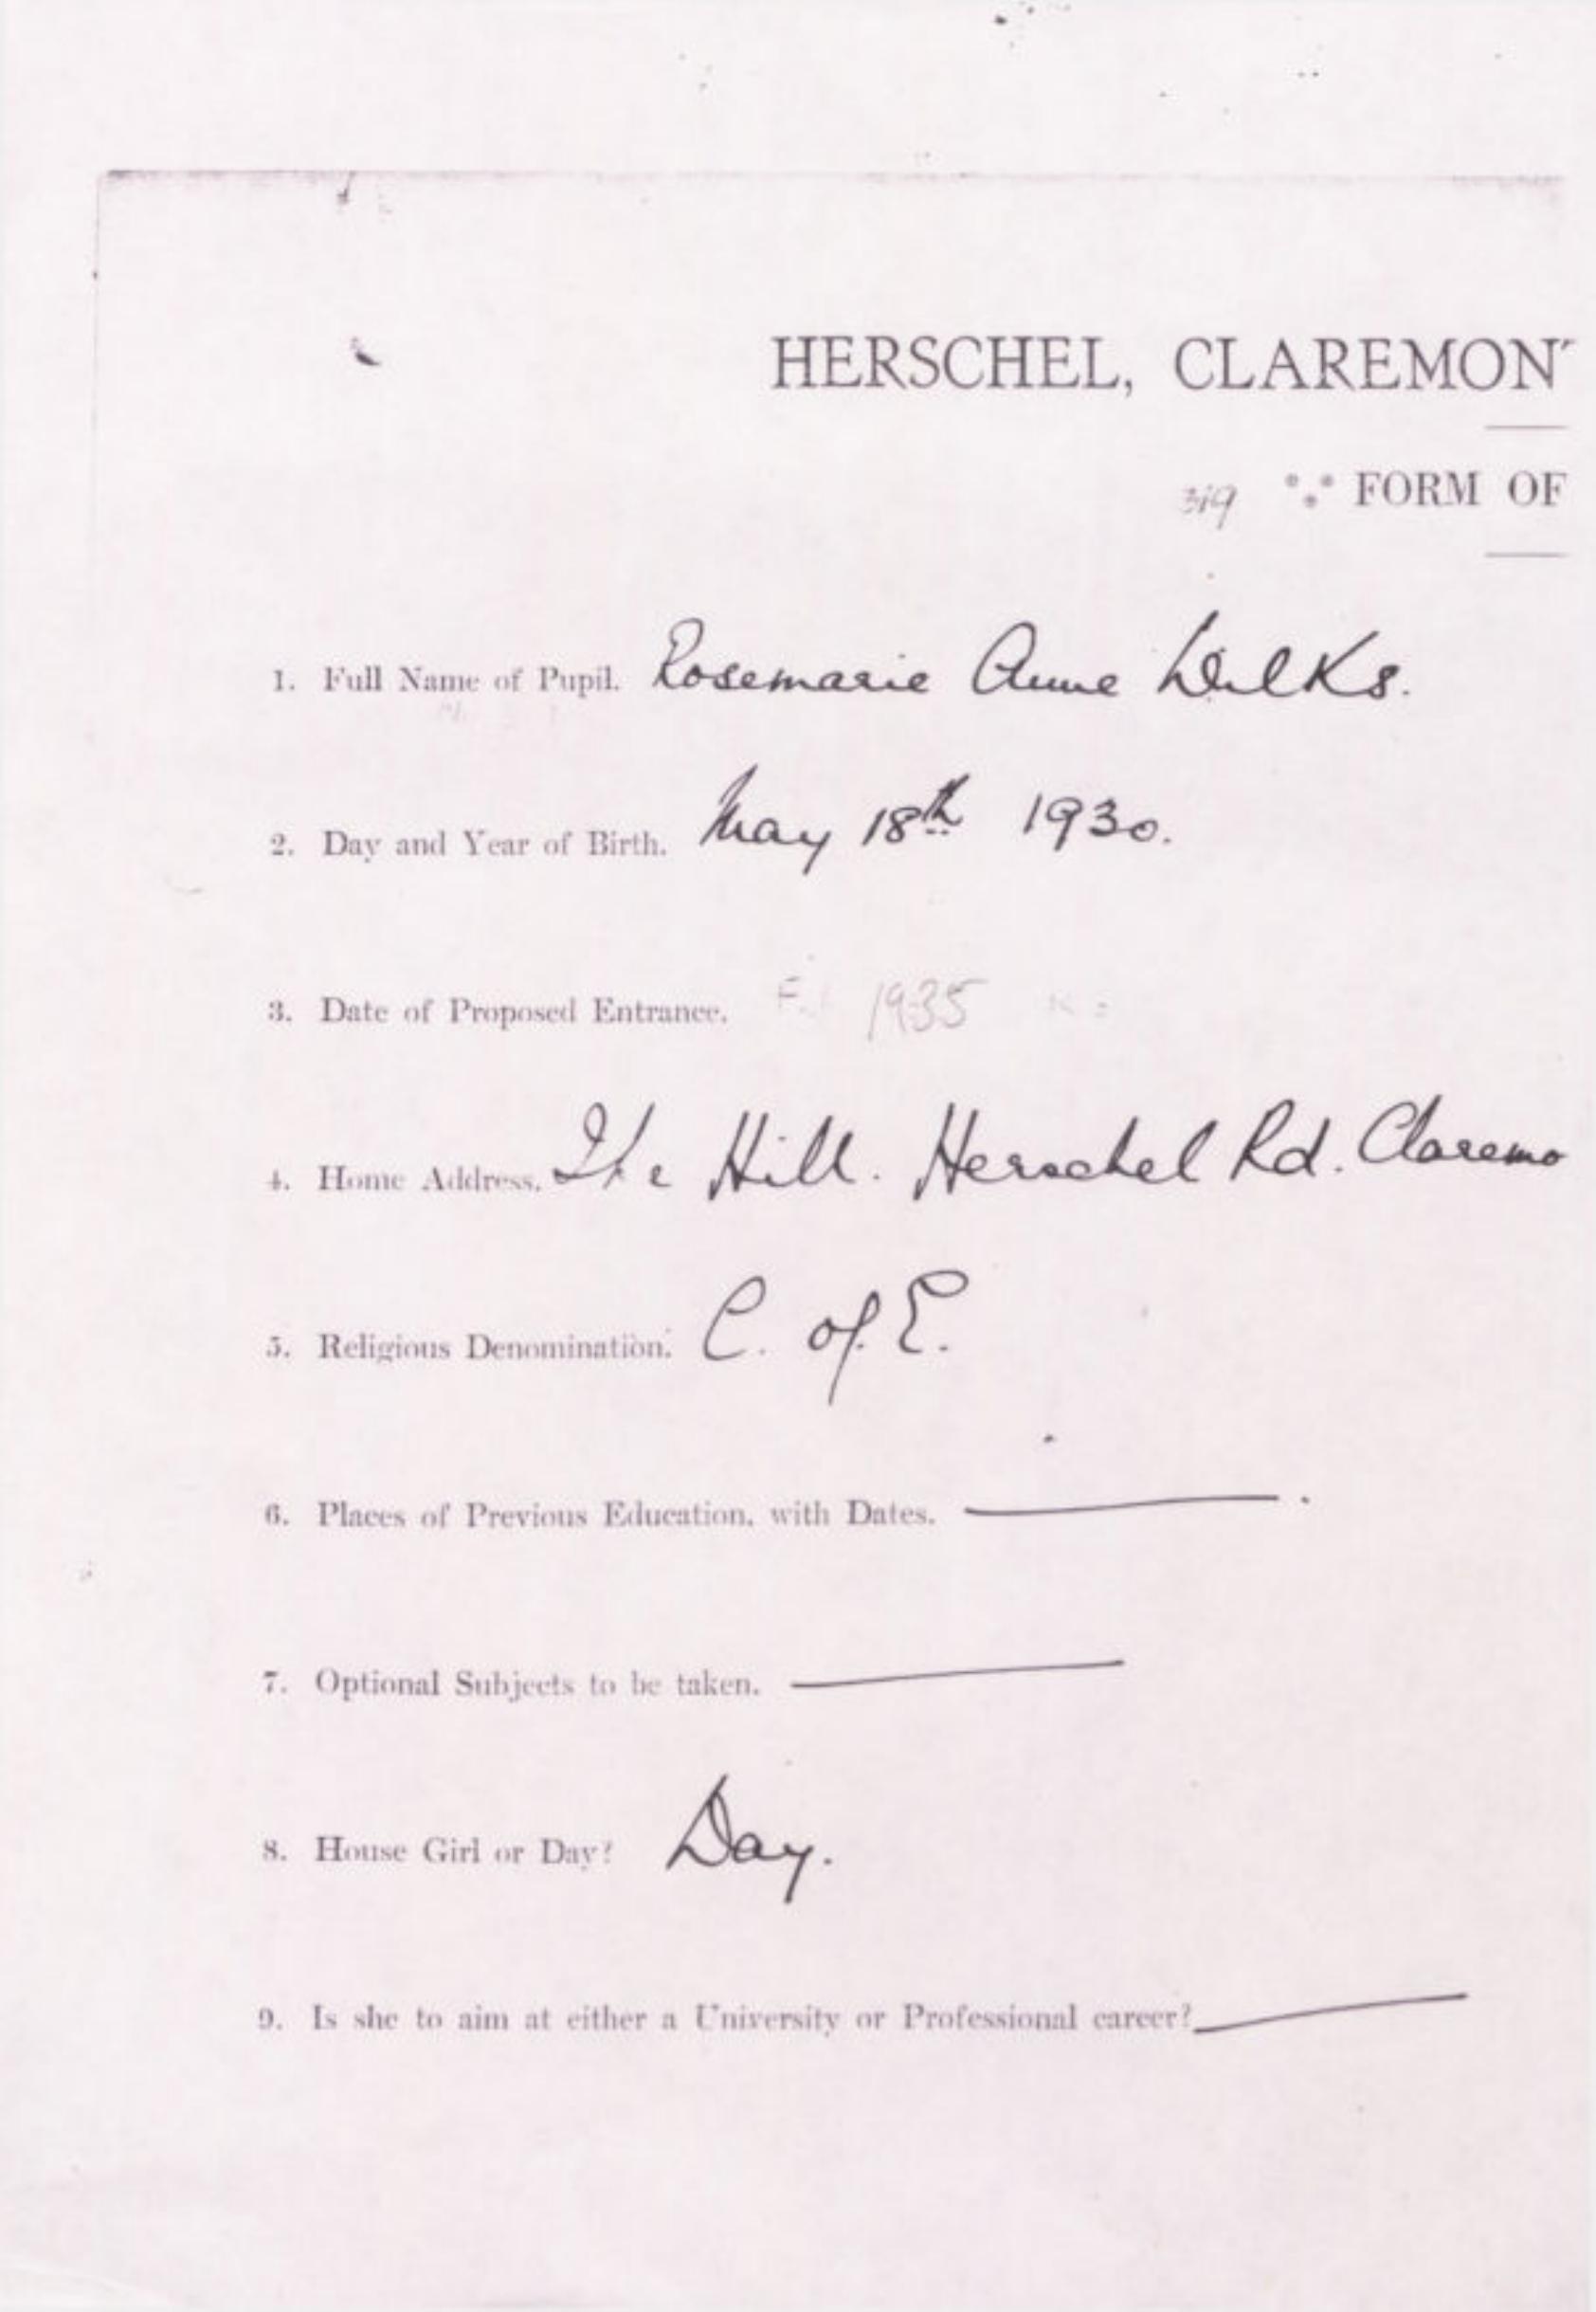 HERSCHEL, CLAREMON
319 FORM OF
1. Full Name of Pupil. Rosemarie Anne Wilks.
2. Day and Year of Birth. May 18th 1930.
3. Date of Proposed Entrance. 1935
4. Home Address. The Hill. Herschel Rd. Claremo
5. Religious Denomination. C. of E.
6. Places of Previous Education, with Dates. —.
7. Optional Subjects to be taken. —
8. House Girl or Day? Day.
9. Is she to aim at either a University or Professional career? —